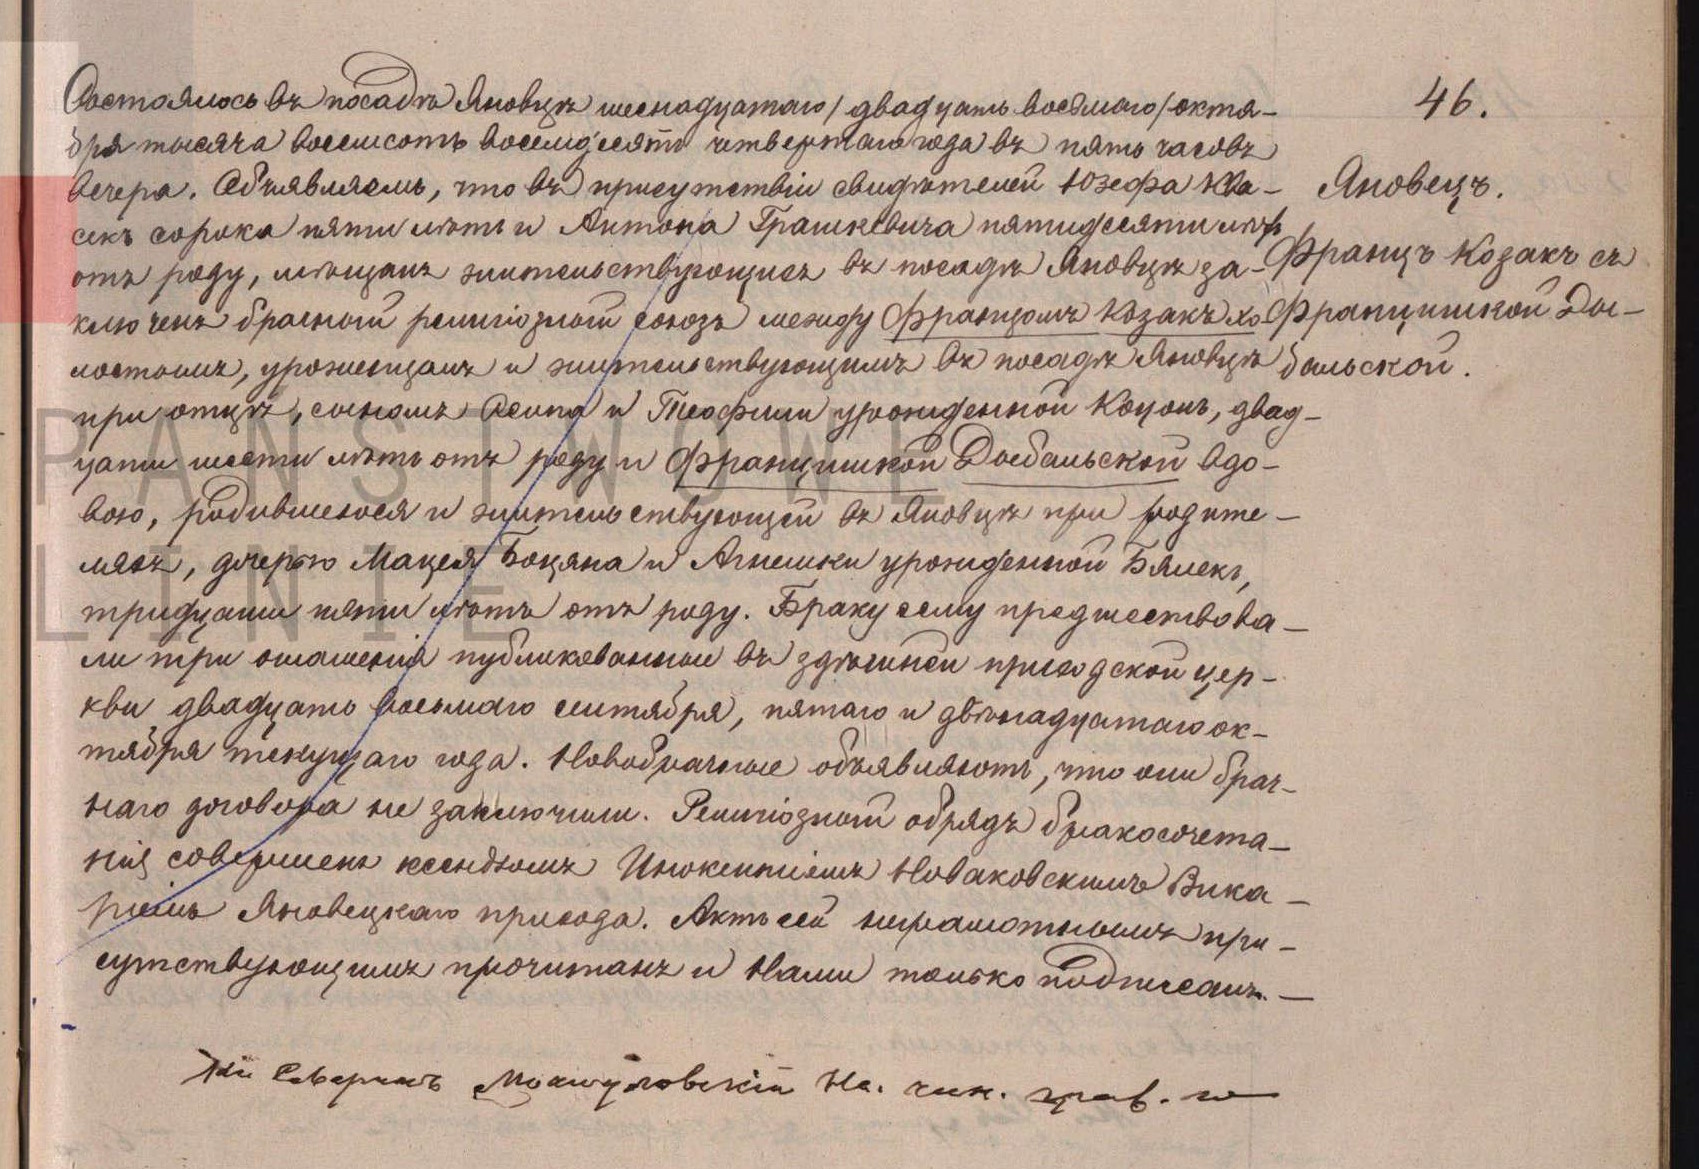 46.
Яновецъ.
Францъ Козакъ съ
Францишкой Дом-
бальской.
Состоялось въ посадѣ Яновцѣ шеснадцатаго / двадцать восьмаго / октя-
бря тысяча восемсотъ восемдесятъ четвертаго года въ пять часовъ
вечера. Объявляемъ, что въ присутствіи свидѣтелей Юзефа
сорока пяти лѣтъ и Антона Грашкевича пятидесяти лѣтъ
отъ роду, мѣщанъ жительствующихъ въ посадѣ Яновцѣ за-
ключенъ брачный религіозный союзъ между Францомъ Козакъ хо-
лостымъ, урожденцамъ и жительствующимъ въ посадѣ Яновцѣ
при отцѣ, сыномъ Осипа и Теофили урожденной Коцонъ, двад-
цати шести лѣтъ отъ роду и Францишкой Домбальской вдо-
вою, родившеюся и жительствующей въ Яновцѣ при родите-
ляхъ, дочерью Мацея Боцяна и Агнешки урожденной Бялекъ,
тридцати пяти лѣтъ отъ роду. Браку сему предшествова-
ли три оглашенія публикованные въ здѣшней приходской цер-
кви двадцать восьмаго сентября, пятаго и двѣнадцатаго ок-
тября текущаго года. Новобрачные объявляютъ, что они брач-
наго договора не заключили. Религіозный обрядъ бракосочета-
нія совершенъ ксендзомъ Инокентіемъ Новаковскимъ Вика-
ріемъ Яновецкаго прихода. Актъ сей неграмотнымъ при-
сутствующимъ прочитанъ и Нами только подписанъ. —
Северинъ На. чин. граж.